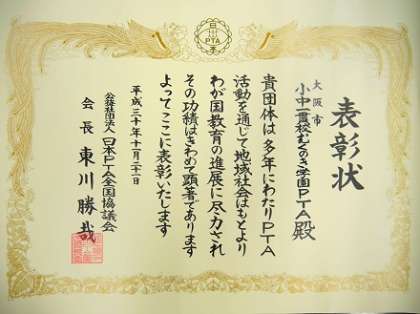 日
PTA
本
表彰状
大阪市
小中一貫校むくのき学園PTA殿
貴団体は多年にわたりPTA
活動を通じて地域社会はもとより
わが国教育の進展に尽力され
その功績はきわめて顕著であります
よってここに表彰いたします
平成三十年十一月二十一日
公益社団法人 日本PTA全国協議会
会長 東川勝哉